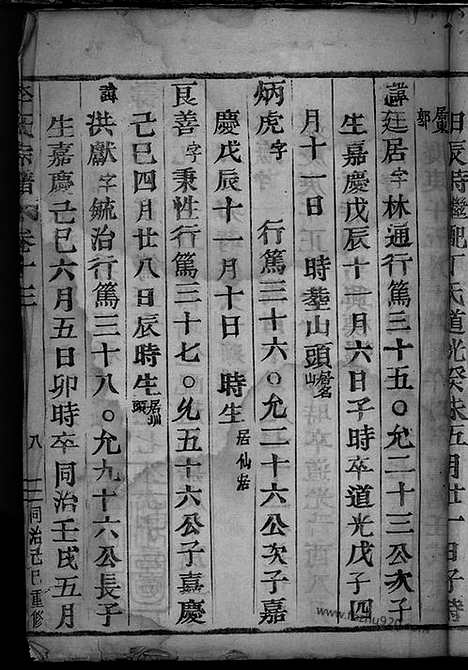 日辰時繼配丁氏道光癸未五月廿一日子時
諱廷居字林通行篤三十五〇允二十三公次子
生嘉慶戊辰十一月六日子時卒道光戊子四
月十一日 時塟山頭
炳虎字 行篤三十六〇允二十六公次子嘉
慶戊辰十一月十日 時生居仙岩
良善字秉性行篤三十七〇允五十六公子嘉慶
己巳四月廿八日辰時生
諱洪獻字毓治行篤三十八〇允九十六公長子
生嘉慶己巳六月五日卯時卒同治壬戌五月
宗譜 卷十三 八 同治己巳重修